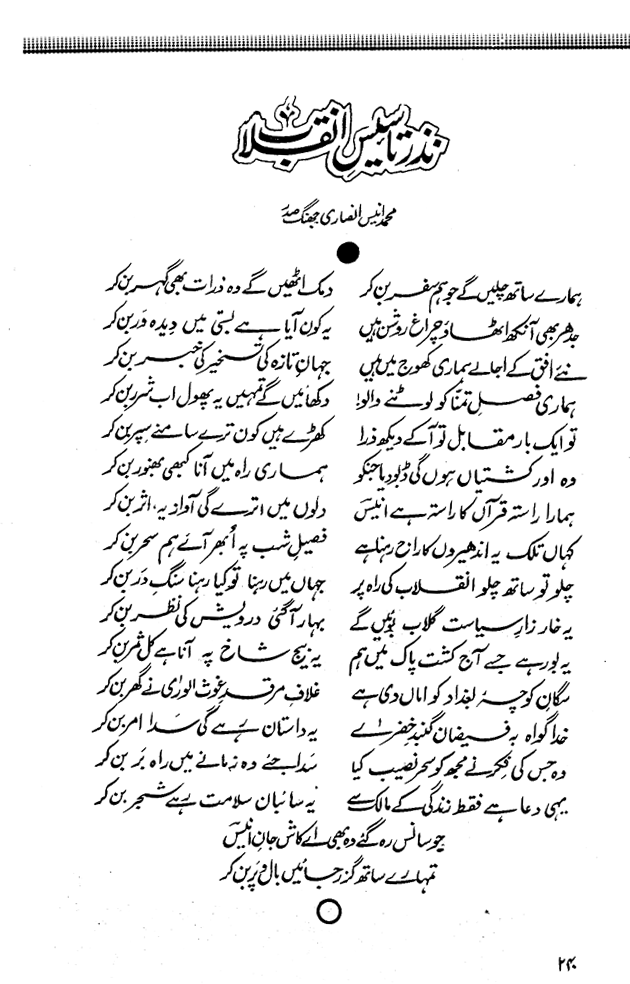 نذر تاسیسِ انقلاب
محمد انیس انصاری جھنگ صدر
ہمارے ساتھ چلیں گے جو ہم سفر بن کر دمک اٹھیں گے وہ ذرات بھی گہر بن کر
جدھر بھی آنکھ اٹھاؤ چراغ روشن ہیں یہ کون آیا ہے بستی میں دیدہ ور بن کر
نئے افق کے اجالے ہماری کھوج میں ہیں جہانِ تازہ کی تسخیر کی خبر بن کر
ہماری فصلِ تمنا کو لوٹنے والو! دکھائیں گے تمہیں یہ پھول اب شرر بن کر
تو ایک بار مقابل تو آ کے دیکھ ذرا کھڑے ہیں کون ترے سامنے سپر بن کر
وہ اور کشتیاں ہوں گی ڈبو دیا جنکو ہماری راہ میں آنا کبھی بھنور بن کر
ہمارا راستہ قرآں کا راستہ ہے انیسؔ دلوں میں اترے گی آواز یہ، اثر بن کر
کہاں تلک یہ اندھیروں کا راج رہنا ہے فصیلِ شب پہ اُبھر آئے ہم سحر بن کر
چلو تو ساتھ چلو انقلاب کی راہ پر جہاں میں رہنا تو کیا رہنا سنگِ در بن کر
یہ خار زارِ سیاست گلاب بوئیں گے بہار آگئی درویش کی نظر بن کر
یہ بور ہے جسے آج کشت پاک میں ہم یہ بیج شاخ پہ آنا ہے کل ثمر بن کر
سگانِ کوچہٴ بغداد کو اماں دی ہے غلافِ مرقدِ غوث الوریٰ نے گھر بن کر
خدا گواہ بہ فیضان گنبدِ خضریٰ یہ داستان رہے گی سدا امر بن کر
وہ جس کی فکر نے مجھ کو سحر نصیب کیا سدا جئے وہ زمانے میں راہ بر بن کر
یہی دعا ہے فقط زندگی کے مالک سے یہ سائبان سلامت رہے شجر بن کر
جو سانس رہ گئے وہ بھی اے کاش جانِ انیسؔ
تمہارے ساتھ گزر جائیں بال و پر بن کر
۲۴۰